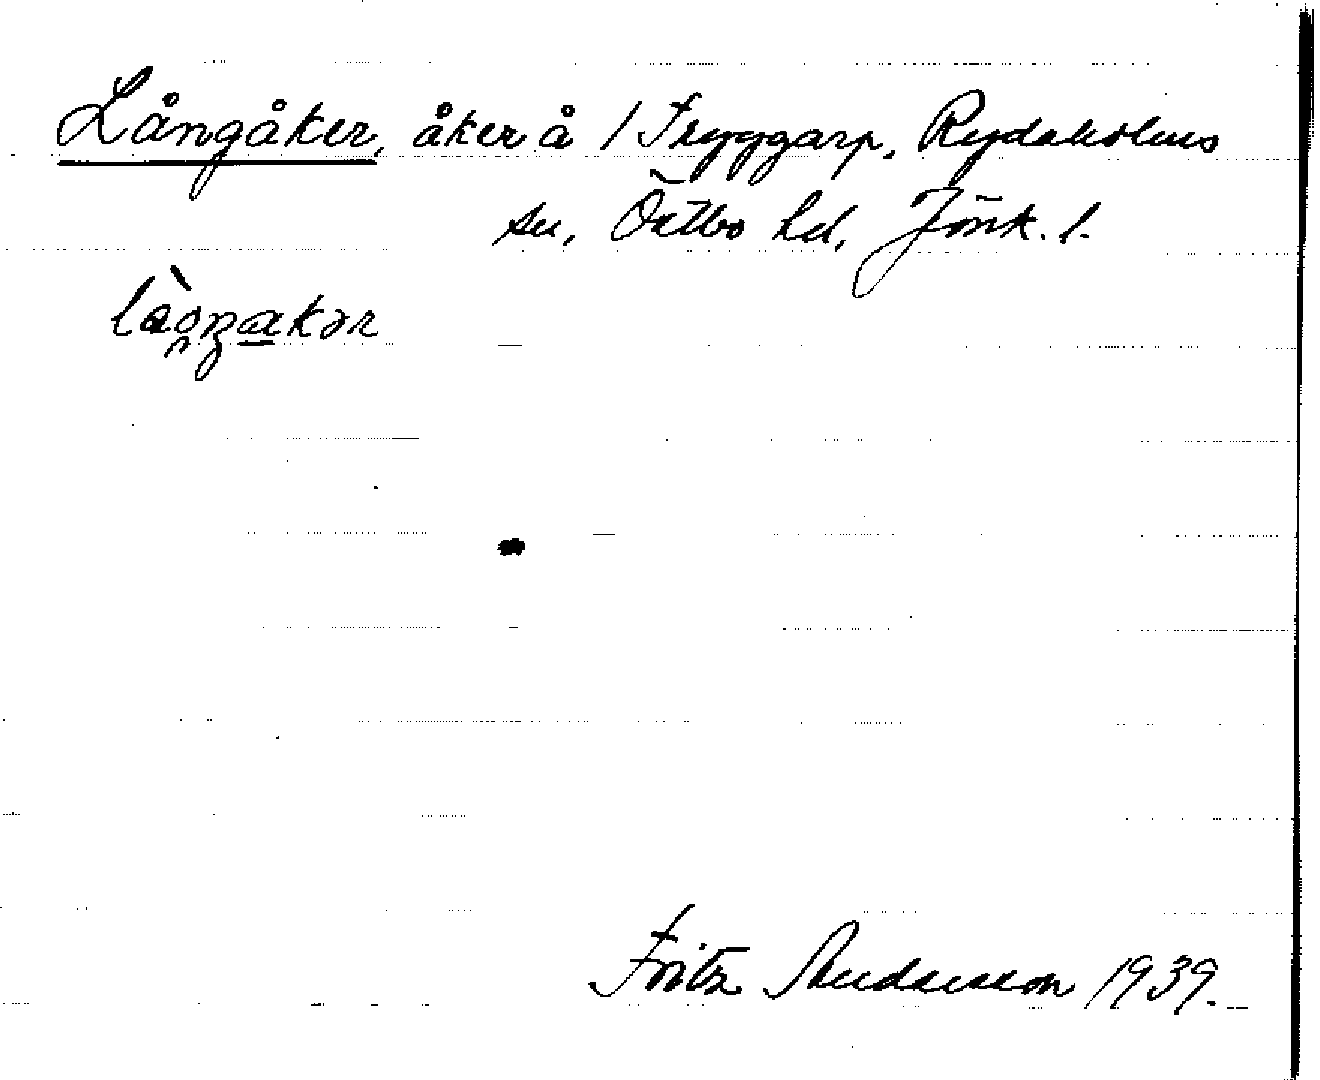 Långåker, åker å / Tryggarp, Rydaholms
sn, Östbo hd, Jönk. l.
Fritz Andersson 1939.